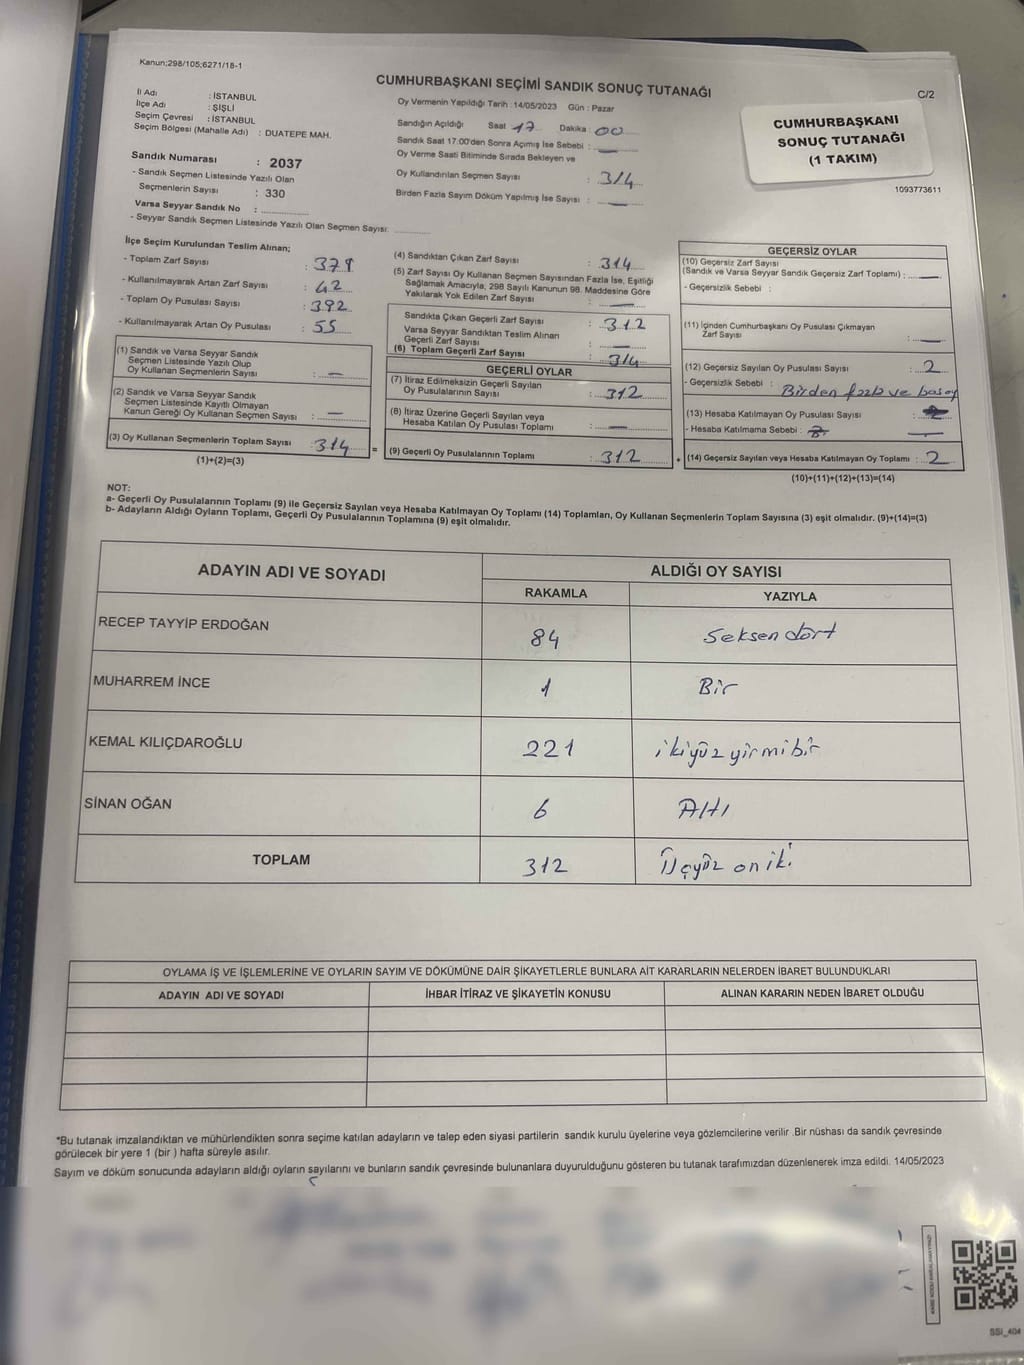 Kanun;298/105;6271/18-1
CUMHURBAŞKANI SEÇİMİ SANDIK SONUÇ TUTANAĞI
C/2
İl Adı : İSTANBUL
İlçe Adı : ŞİŞLİ
Seçim Çevresi : İSTANBUL
Seçim Bölgesi (Mahalle Adı) : DUATEPE MAH.
Sandık Numarası : 2037
- Sandık Seçmen Listesinde Yazılı Olan
Seçmenlerin Sayısı : 330
Varsa Seyyar Sandık No : ..............
- Seyyar Sandık Seçmen Listesinde Yazılı Olan Seçmen Sayısı: ..........
Oy Vermenin Yapıldığı Tarih :14/05/2023 Gün : Pazar
Sandığın Açıldığı Saat 17 Dakika : 00
Sandık Saat 17:00'den Sonra Açımış İse Sebebi : —
Oy Verme Saati Bitiminde Sırada Bekleyen ve
Oy Kullandırılan Seçmen Sayısı : 314
Birden Fazla Sayım Döküm Yapılmış İse Sayısı : —
CUMHURBAŞKANI
SONUÇ TUTANAĞI
(1 TAKIM)
1093773611
İlçe Seçim Kurulundan Teslim Alınan;
- Toplam Zarf Sayısı :
- Kullanılmayarak Artan Zarf Sayısı : 42
- Toplam Oy Pusulası Sayısı : 392
- Kullanılmayarak Artan Oy Pusulası : 55
(1) Sandık ve Varsa Seyyar Sandık
Seçmen Listesinde Yazılı Olup
Oy Kullanan Seçmenlerin Sayısı : —
(2) Sandık ve Varsa Seyyar Sandık
Seçmen Listesinde Kayıtlı Olmayan
Kanun Gereği Oy Kullanan Seçmen Sayısı : —
(3) Oy Kullanan Seçmenlerin Toplam Sayısı : 314
(1)+(2)=(3)
(4) Sandıktan Çıkan Zarf Sayısı : 314
(5) Zarf Sayısı Oy Kullanan Seçmen Sayısından Fazla İse, Eşitliği
Sağlamak Amacıyla, 298 Sayılı Kanunun 98. Maddesine Göre
Yakılarak Yok Edilen Zarf Sayısı : —
Sandıkta Çıkan Geçerli Zarf Sayısı : 312
Varsa Seyyar Sandıktan Teslim Alınan
Geçerli Zarf Sayısı : —
(6) Toplam Geçerli Zarf Sayısı : 314
GEÇERLİ OYLAR
(7) İtiraz Edilmeksizin Geçerli Sayılan
Oy Pusulalarının Sayısı : 312
(8) İtiraz Üzerine Geçerli Sayılan veya
Hesaba Katılan Oy Pusulası Toplamı : —
(9) Geçerli Oy Pusulalarının Toplamı : 312
GEÇERSİZ OYLAR
(10) Geçersiz Zarf Sayısı
(Sandık ve Varsa Seyyar Sandık Geçersiz Zarf Toplamı) : —
- Geçersizlik Sebebi :
(11) İçinden Cumhurbaşkanı Oy Pusulası Çıkmayan
Zarf Sayısı : —
(12) Geçersiz Sayılan Oy Pusulası Sayısı : 2
- Geçersizlik Sebebi : Birden fazla ve
(13) Hesaba Katılmayan Oy Pusulası Sayısı :
- Hesaba Katılmama Sebebi : —
(14) Geçersiz Sayılan veya Hesaba Katılmayan Oy Toplamı : 2
(10)+(11)+(12)+(13)=(14)
NOT:
a- Geçerli Oy Pusulalarının Toplamı (9) ile Geçersiz Sayılan veya Hesaba Katılmayan Oy Toplamı (14) Toplamları, Oy Kullanan Seçmenlerin Toplam Sayısına (3) eşit olmalıdır. (9)+(14)=(3)
b- Adayların Aldığı Oyların Toplamı, Geçerli Oy Pusulalarının Toplamına (9) eşit olmalıdır.
ADAYIN ADI VE SOYADI
ALDIĞI OY SAYISI
RAKAMLA YAZIYLA
RECEP TAYYİP ERDOĞAN 84 Seksen dört
MUHARREM İNCE 1 Bir
KEMAL KILIÇDAROĞLU 221 ikiyüz yirmi bir
SİNAN OĞAN 6 Altı
TOPLAM 312 Üçyüz on iki
OYLAMA İŞ VE İŞLEMLERİNE VE OYLARIN SAYIM VE DÖKÜMÜNE DAİR ŞİKAYETLERLE BUNLARA AİT KARARLARIN NELERDEN İBARET BULUNDUKLARI
ADAYIN ADI VE SOYADI İHBAR İTİRAZ VE ŞİKAYETİN KONUSU ALINAN KARARIN NEDEN İBARET OLDUĞU
*Bu tutanak imzalandıktan ve mühürlendikten sonra seçime katılan adayların ve talep eden siyasi partilerin sandık kurulu üyelerine veya gözlemcilerine verilir .Bir nüshası da sandık çevresinde
görülecek bir yere 1 (bir ) hafta süreyle asılır.
Sayım ve döküm sonucunda adayların aldığı oyların sayılarını ve bunların sandık çevresinde bulunanlara duyurulduğunu gösteren bu tutanak tarafımızdan düzenlenerek imza edildi. 14/05/2023
SSI_404